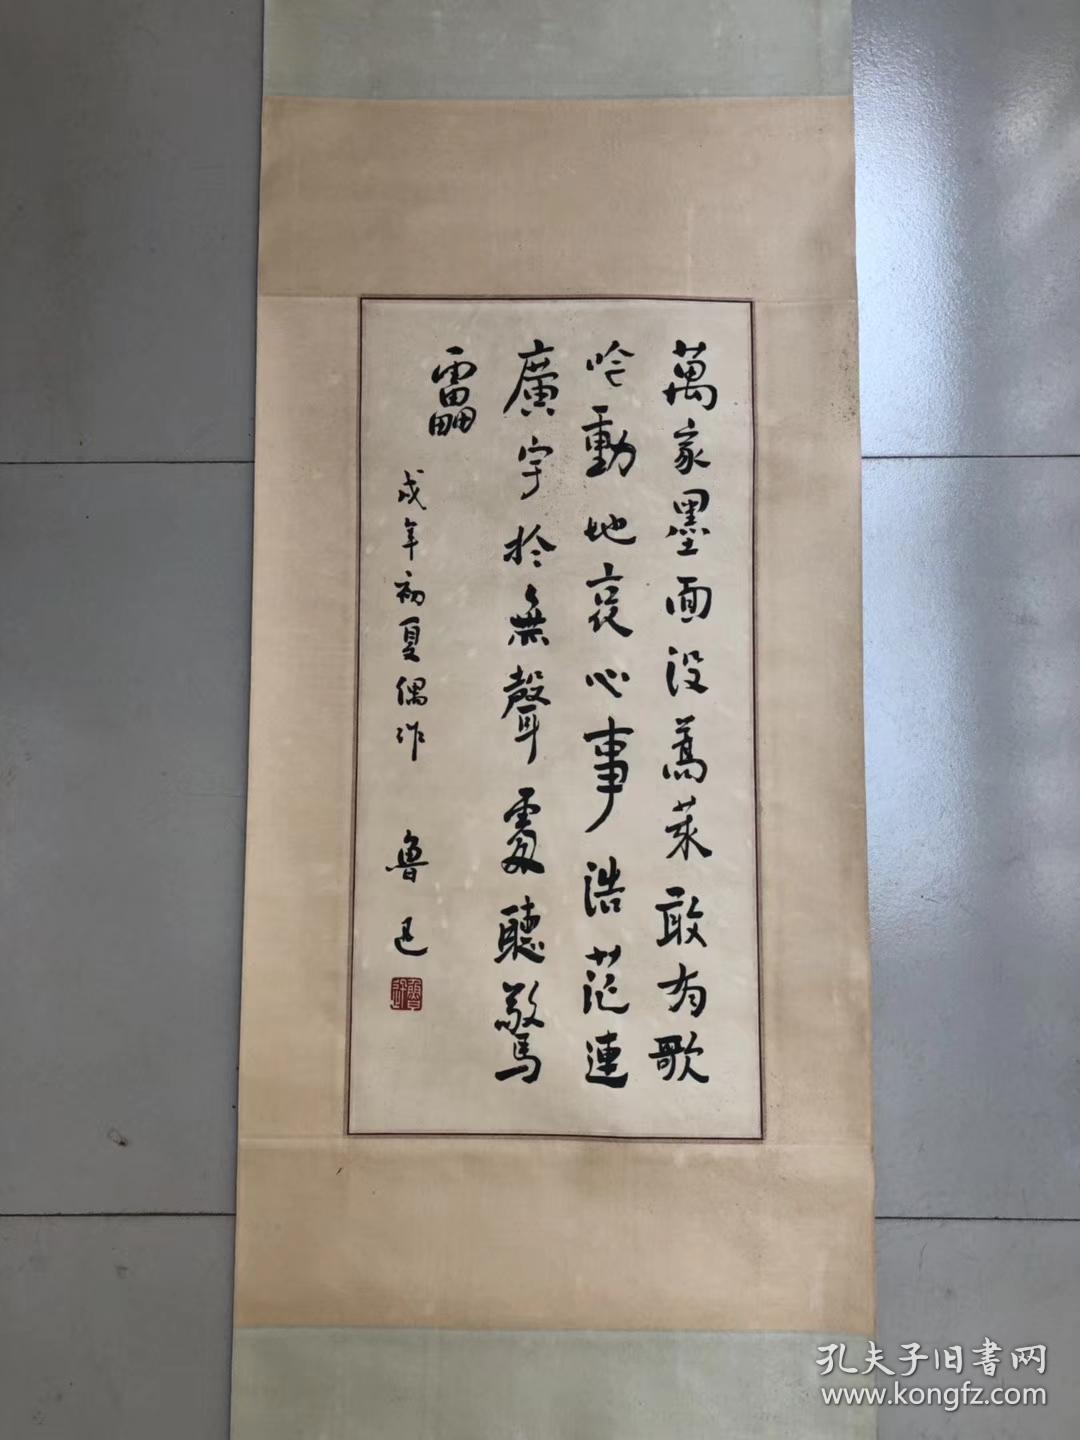 萬家墨面没蒿萊敢有歌
吟動地哀心事浩茫連
廣宇於無聲處聽驚
靁
戌年初夏偶作
魯迅
魯迅
孔夫子旧書网
www.kongfz.com